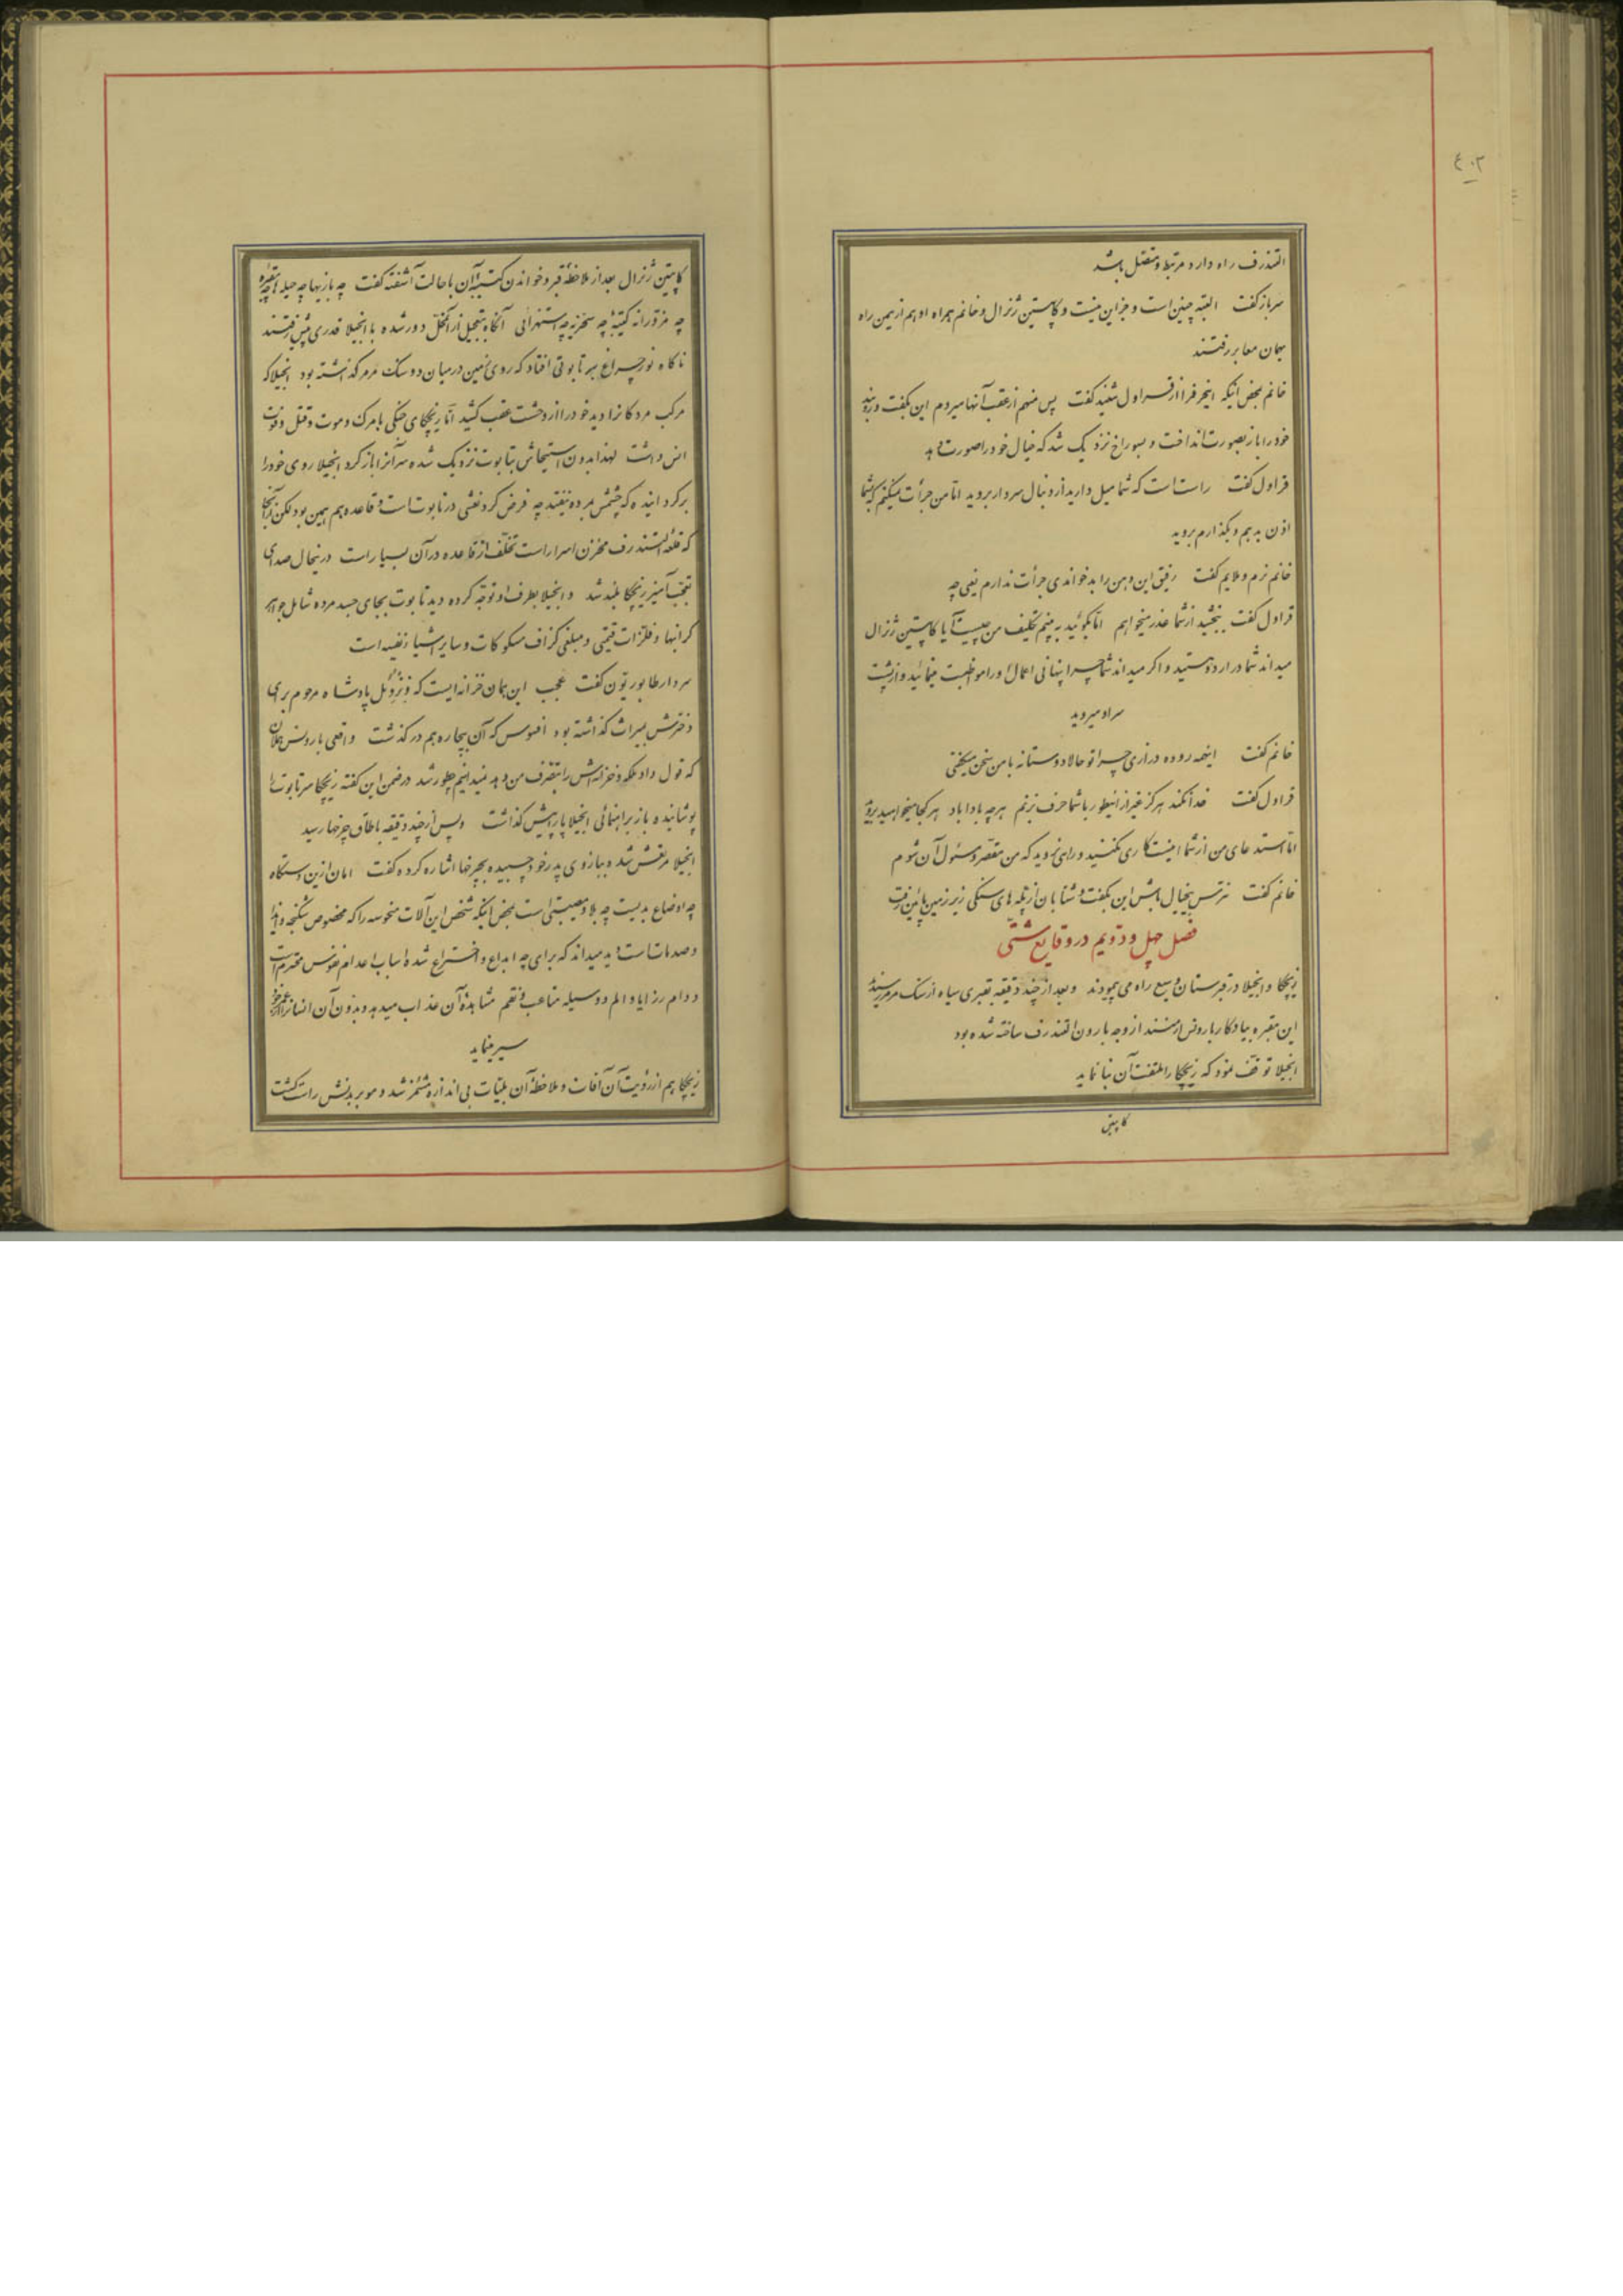 ٤٠٢
التندرف راه دارد مرتبط و متصل باشد
سرباز گفت البته چنین است و جز این نیست و کاپیتین ژنرال و خانم همراه او هم از همین راه
بهمان معابر رفتند
خانم بمحض اینکه اینحرف را از قراول شنید گفت پس منهم از عقب آنها میروم این بگفت و روبند
خود را باز بصورت انداخت و بسوراخ نزدیک شد که خیال خود را صورت دهد
قراول گفت راست است که شما میل دارید از دنبال سردار بروید اما من جرأت نمیکنم که بشما
اذن بدهم و بگذارم بروید
خانم نرم و ملایم گفت رفیق این و هن را بد خواندی جرأت ندارم یعنی چه
قراول گفت ببخشید از شما عذر میخواهم اما بگوئید به بینم تکلیف من چیست آیا کاپیتین ژنرال
میداند شما در اردو هستید و اگر میداند شما چرا پنهانی اعمال او را مواظبت مینمائید و از پشت
سر او میروید
خانم گفت اینهمه روده درازی چرا تو حالا دوستانه با من سخن میگفتی
قراول گفت خدا نکند هرگز غیر از اینطور با شما حرف بزنم هرچه بادا باد هر کجا میخواهید بروید
اما استدعای من از شما اینست کاری نکنید و راهی نروید که من مقصر و مسئول آن شوم
خانم گفت نترس بیخیال باش این بگفت و شتابان از پله های سنگی زیر زمین پائین رفت
فصل چهل و دویم در وقایع شتی
زیچکا و انجیلا در قبرستان وسیع راه می پیمودند و بعد از چند دقیقه بقبری سیاه از سنگ مرمر رسیدند
این مقبره بیادگار بارونس ارمنستد از وجه بارون التندرف ساخته شده بود
انجیلا توقف نمود که زیچکا را ملتفت آن بنا نماید
کاپیتین
کاپیتین ژنرال بعد از ملاحظه قبر و خواندن کتیبه آن با حالت آشفته گفت چه بازیها چه حیله ها چه مقبره
چه مزورانه کتیبه چه سخریه چه استهزائی آنگاه بتعجیل از آن محل دور شده با انجیلا قدری پیش رفتند
ناگاه نور چراغ بر تابوتی افتاد که روی زمین در میان دو سنگ مرمر گذاشته بود انجیلا که
مرکب مردگان را دید خود را از وحشت عقب کشید اما زیچکای جنگی با مرگ و موت و قتل و فوت
انس داشت لهذا بدون استیحاش بتابوت نزدیک شده سر آنرا باز کرد انجیلا روی خود را
برگردانیده که چشمش بمرده نیفتد چه فرض کرد نعشی در تابوت است و قاعده هم همین بود لکن از آنجا
که قلعه التندرف مخزن اسرار است تخلف از قاعده در آن بسیار است در اینحال صدای
تعجب آمیز زیچکا بلند شد و انجیلا بطرف او توجه کرده دید تابوت بجای جسد مرده شامل جواهر
گرانبها و فلزات قیمتی و مبلغی گزاف مسکوکات و سایر اشیاء نفیسه است
سردار طابوریون گفت عجب این همان خزانه ایست که پادشاه مرحوم برای
دخترش بمیراث گذاشته بود افسوس که آن بیچاره هم در گذشت واقعی بارونس هملان
که قول داد ملکه و خزانه اش را بتصرف من دهد نمیدانیم چطور شد در ضمن این گفته زیچکا سر تابوت را
پوشانیده باز براهنمائی انجیلا پا پیش گذاشت و پس از چند دقیقه باطاق چرخها رسید
انجیلا مرتعش شده ببازوی پدر خود چسبیده بچرخها اشاره کرده گفت امان ازین دستگاه
چه اوضاع بدیست چه بلا و مصیبتی است بمحض اینکه شخص این آلات منحوسه را که مخصوص شکنجه و ایذا
و صدمات است دید میداند که برای چه ابداع و اختراع شده اسباب اعدام نفوس محترم است
و دام رزایا و الم و وسیله متاعب و نقم مشاهده آن عذاب میدهد و بدون آن انسان را از عمر خود
سیر مینماید
زیچکا هم از رؤیت آن آفات و ملاحظه آن بلیات بی اندازه مشمئز شد و مو بر بدنش راست گشت